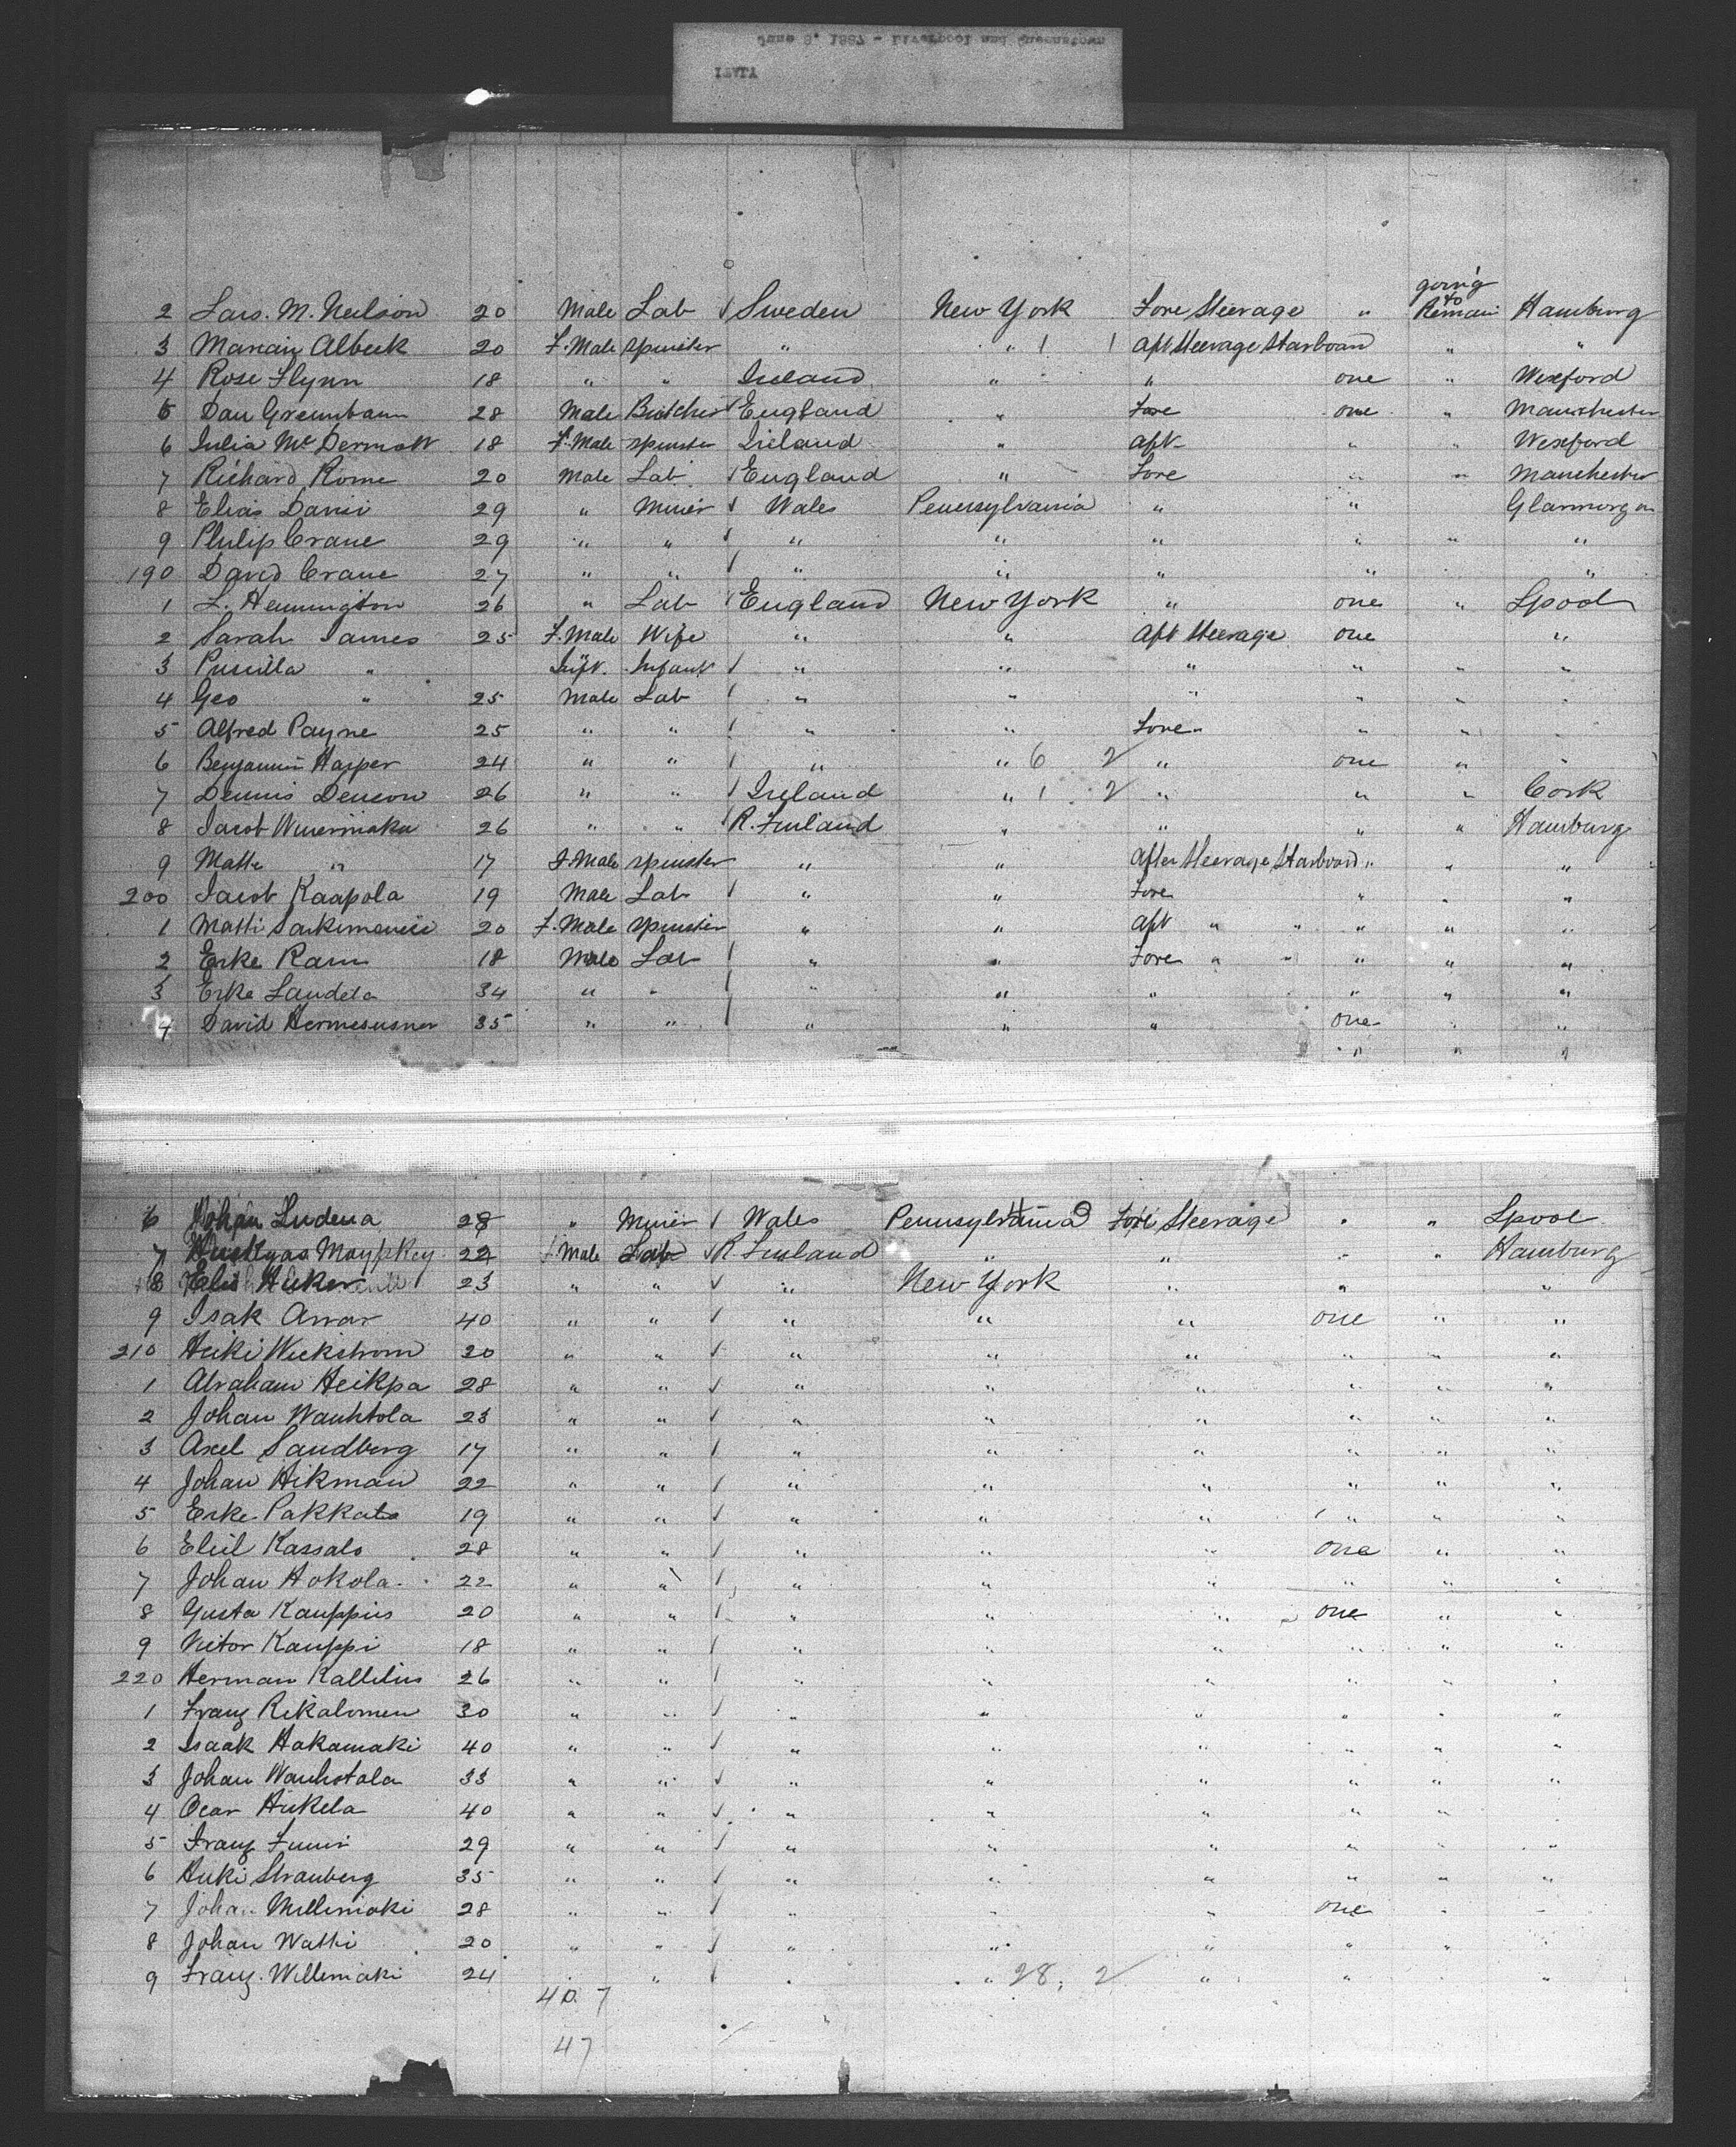 June 8, 1887 - Liverpool and Queenstown
ITALY
going
to
2 Lars. M. Neilson 20 Male Lab √ Sweden New York Fore Steerage " Remain Hamburg
3 Marian Albeck 20 F. Male Spinster " " 1 1 Aft Steerage Starboard " "
4 Rose Flynn 18 " " Ireland " " one " Wexford
5 Dan Greenbaum 28 Male Butcher √ England " Fore one " Manchester
6 Julia McDermott 18 F. Male Spinster Ireland " Aft " " Wexford
7 Richard Rome 20 Male Lab √ England " Fore " " Manchester
8 Elias Davis 29 " Miner √ Wales Pennsylvania " " Glarmorgan
9 Philip Crane 29 " " √ " " " " " "
190 David Crane 27 " " √ " " " " "
1 L. Hennington 26 " Lab √ England New York " one " Lpool
2 Sarah James 25 F. Male Wife " " Aft Steerage one "
3 Priscilla " Inft. Infant √ " " " " " "
4 Geo " 25 Male Lab √ " " " " " "
5 Alfred Payne 25 " " √ " " Fore " "
6 Benjamin Harper 24 " " √ " " 6 2 " one " "
7 Dennis Deneon 26 " " √ Ireland " 1 2 " " " Cork
8 Jacob 26 " " R. Finland " " " " Hamburg
9 Matte " 17 F. Male Spinster " " After Steerage Starboard " " "
200 Jacob Kaapola 19 Male Lab √ " " Fore " " "
1 Matti 20 F. Male Spinster " " Aft " " " " "
2 Erke Ram 18 Male Lab √ " " Fore " " " " "
3 Erke Laudela 34 " " √ " " " " " "
4 David 35 " " √ " " " one " "
" " "
6 Johan Ludena 28 " Miner √ Wales Pennsylvania Fore Steerage " " Lpool
7 22 Male Lab √ R. Finland " " " " Hamburg
8 23 " " √ " New York " " "
9 Isak Arrar 40 " " √ " " " one " "
210 Heiki Wickstrom 20 " " √ " " " " " "
1 Abraham Heikpa 28 " " √ " " " " " "
2 Johan Wauhtola 23 " " √ " " " " " "
3 Axel Sandberg 17 " " √ " " " " " "
4 Johan Hikman 22 " " √ " " " " " "
5 Erke Pakkala 19 " " √ " " " " " "
6 Eliel Kassalo 28 " " √ " " " one " "
7 Johan Hokola 22 " " √ " " " " " "
8 Gusta Kauppis 20 " " √ " " " one " "
9 Victor Kauppi 18 " " √ " " " " " "
220 Herman Kallelius 26 " " √ " " " " " "
1 Franz Rikalomen 30 " " √ " " " " " "
2 Isaak Hakamaki 40 " " √ " " " " " "
3 Johan Wauhotala 33 " " √ " " " " " "
4 Ocar Hikela 40 " " √ " " " " "
5 Franz 29 " " √ " " " " " "
6 Heiki Strauberg 35 " " √ " " " " " "
7 Johan Millimaki 28 " " √ " " " one " "
8 Johan Watti 20 " " √ " " " " " "
9 Franz Willimaki 24 " " √ " " 28, 2 " " "
40. 7
47